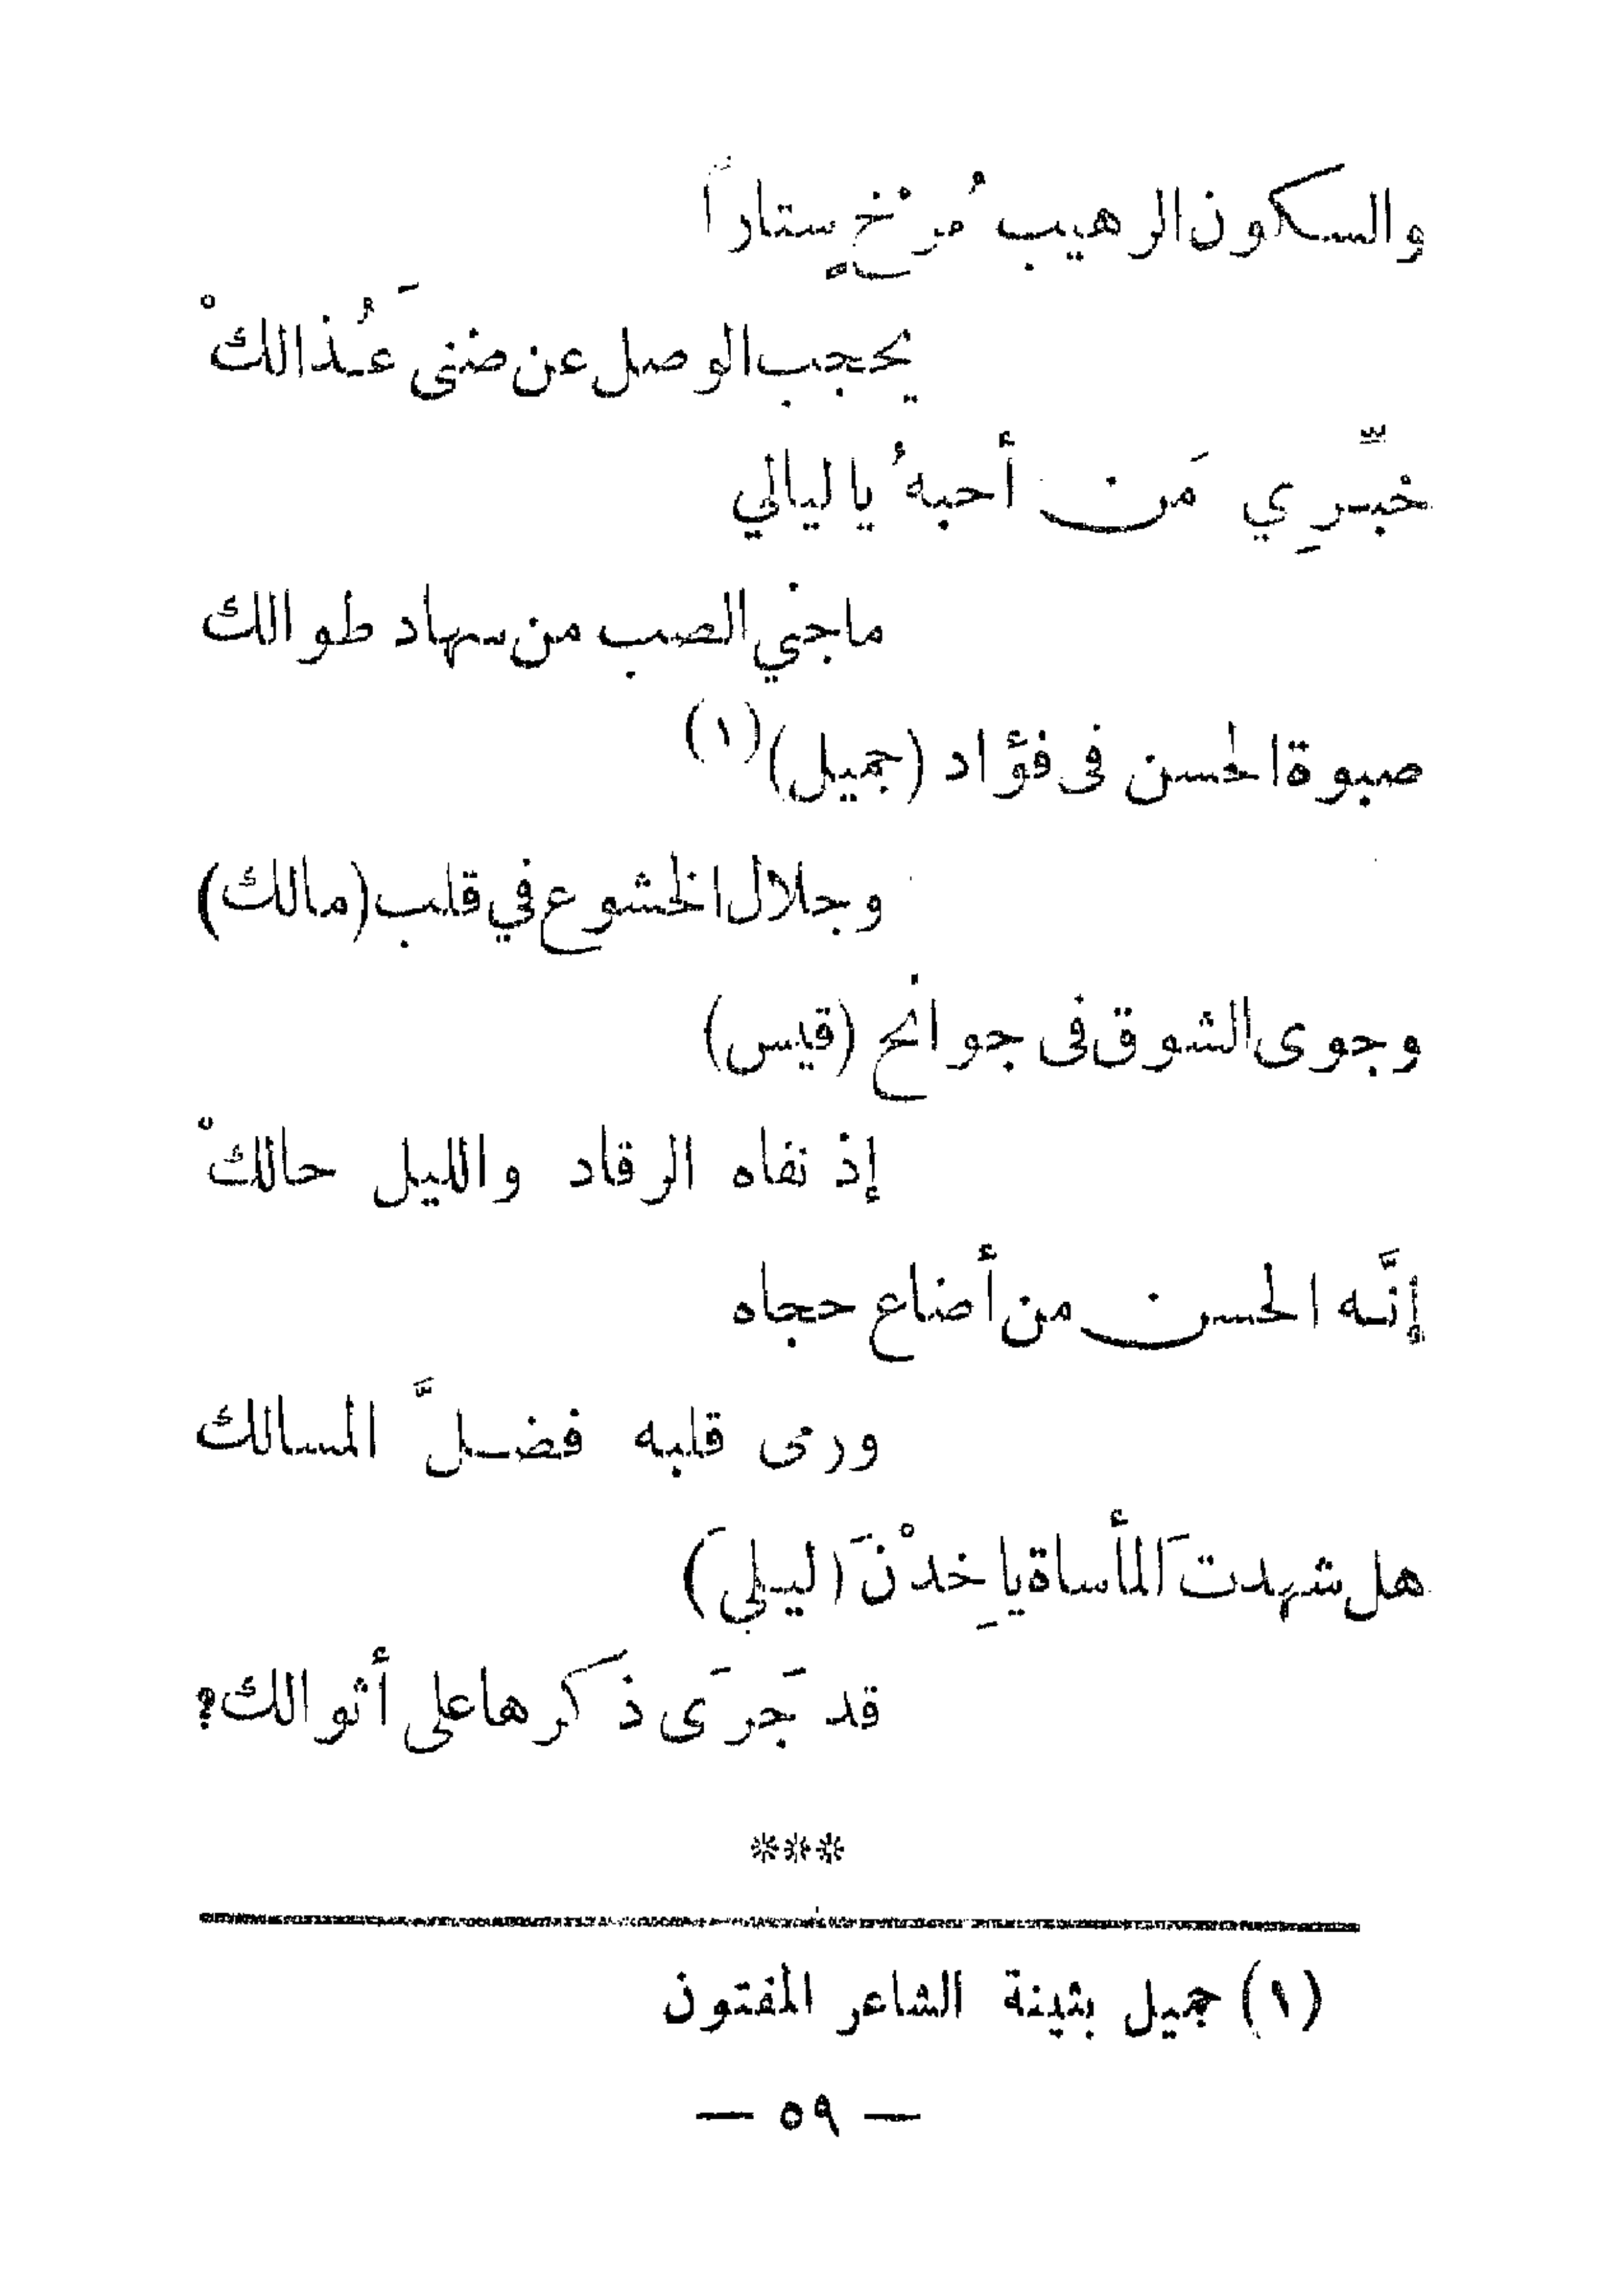 والسكون الرهيب مُرْخٍ ستاراً
يحجب الوصل عن ضنى عَُذالكْ
خبِّرِي مَن أحبهُ يا ليالي
ما جني الصب من سهاد طوالك
صبوة الحسن فى فؤاد (جميل) (١)
وجلال الخشوع في قلب (مالك)
وجوى الشوق فى جوانح (قيس)
إذ نفاه الرقاد والليل حالكْ
إنَّه الحسن من أضاع حجاه
ورمى قلبه فضلَّ المسالك
هل شهدتَ المأساة يا خِدْنَ (ليلىَ)
قد جَرَى ذكرها على أثوالك؟
***
(١) جميل بثينة الشاعر المفتون
— ٥٩ —